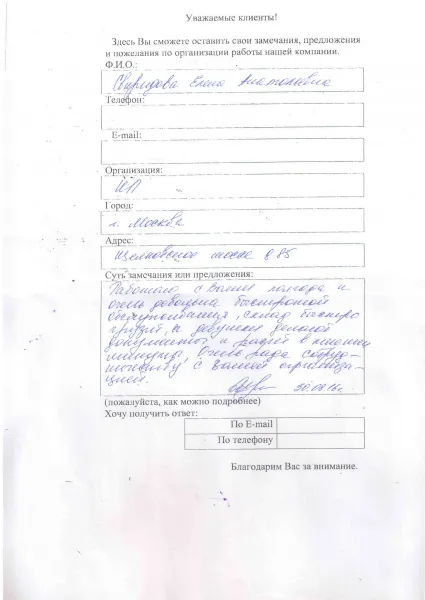 Уважаемые клиенты!
Здесь Вы сможете оставить свои замечания, предложения
и пожелания по организации работы нашей компании.
Ф.И.О.:
Свиридова Елена Анатольевна
Телефон:
E-mail:
Организация:
ИП
Город:
г. Москва
Адрес:
Щелковское шоссе д 85
Суть замечания или предложения:
Работаю с Вами полгода и
очень довольна быстротой
обслуживания, склад быстро
грузит, а девушки делают
документы и радует в считанные
минуты. Очень рада сотруд-
ничеству с Вашей организа-
цией.
30.08.16г.
(пожалуйста, как можно подробнее)
Хочу получить ответ:
По E-mail
По телефону
Благодарим Вас за внимание.